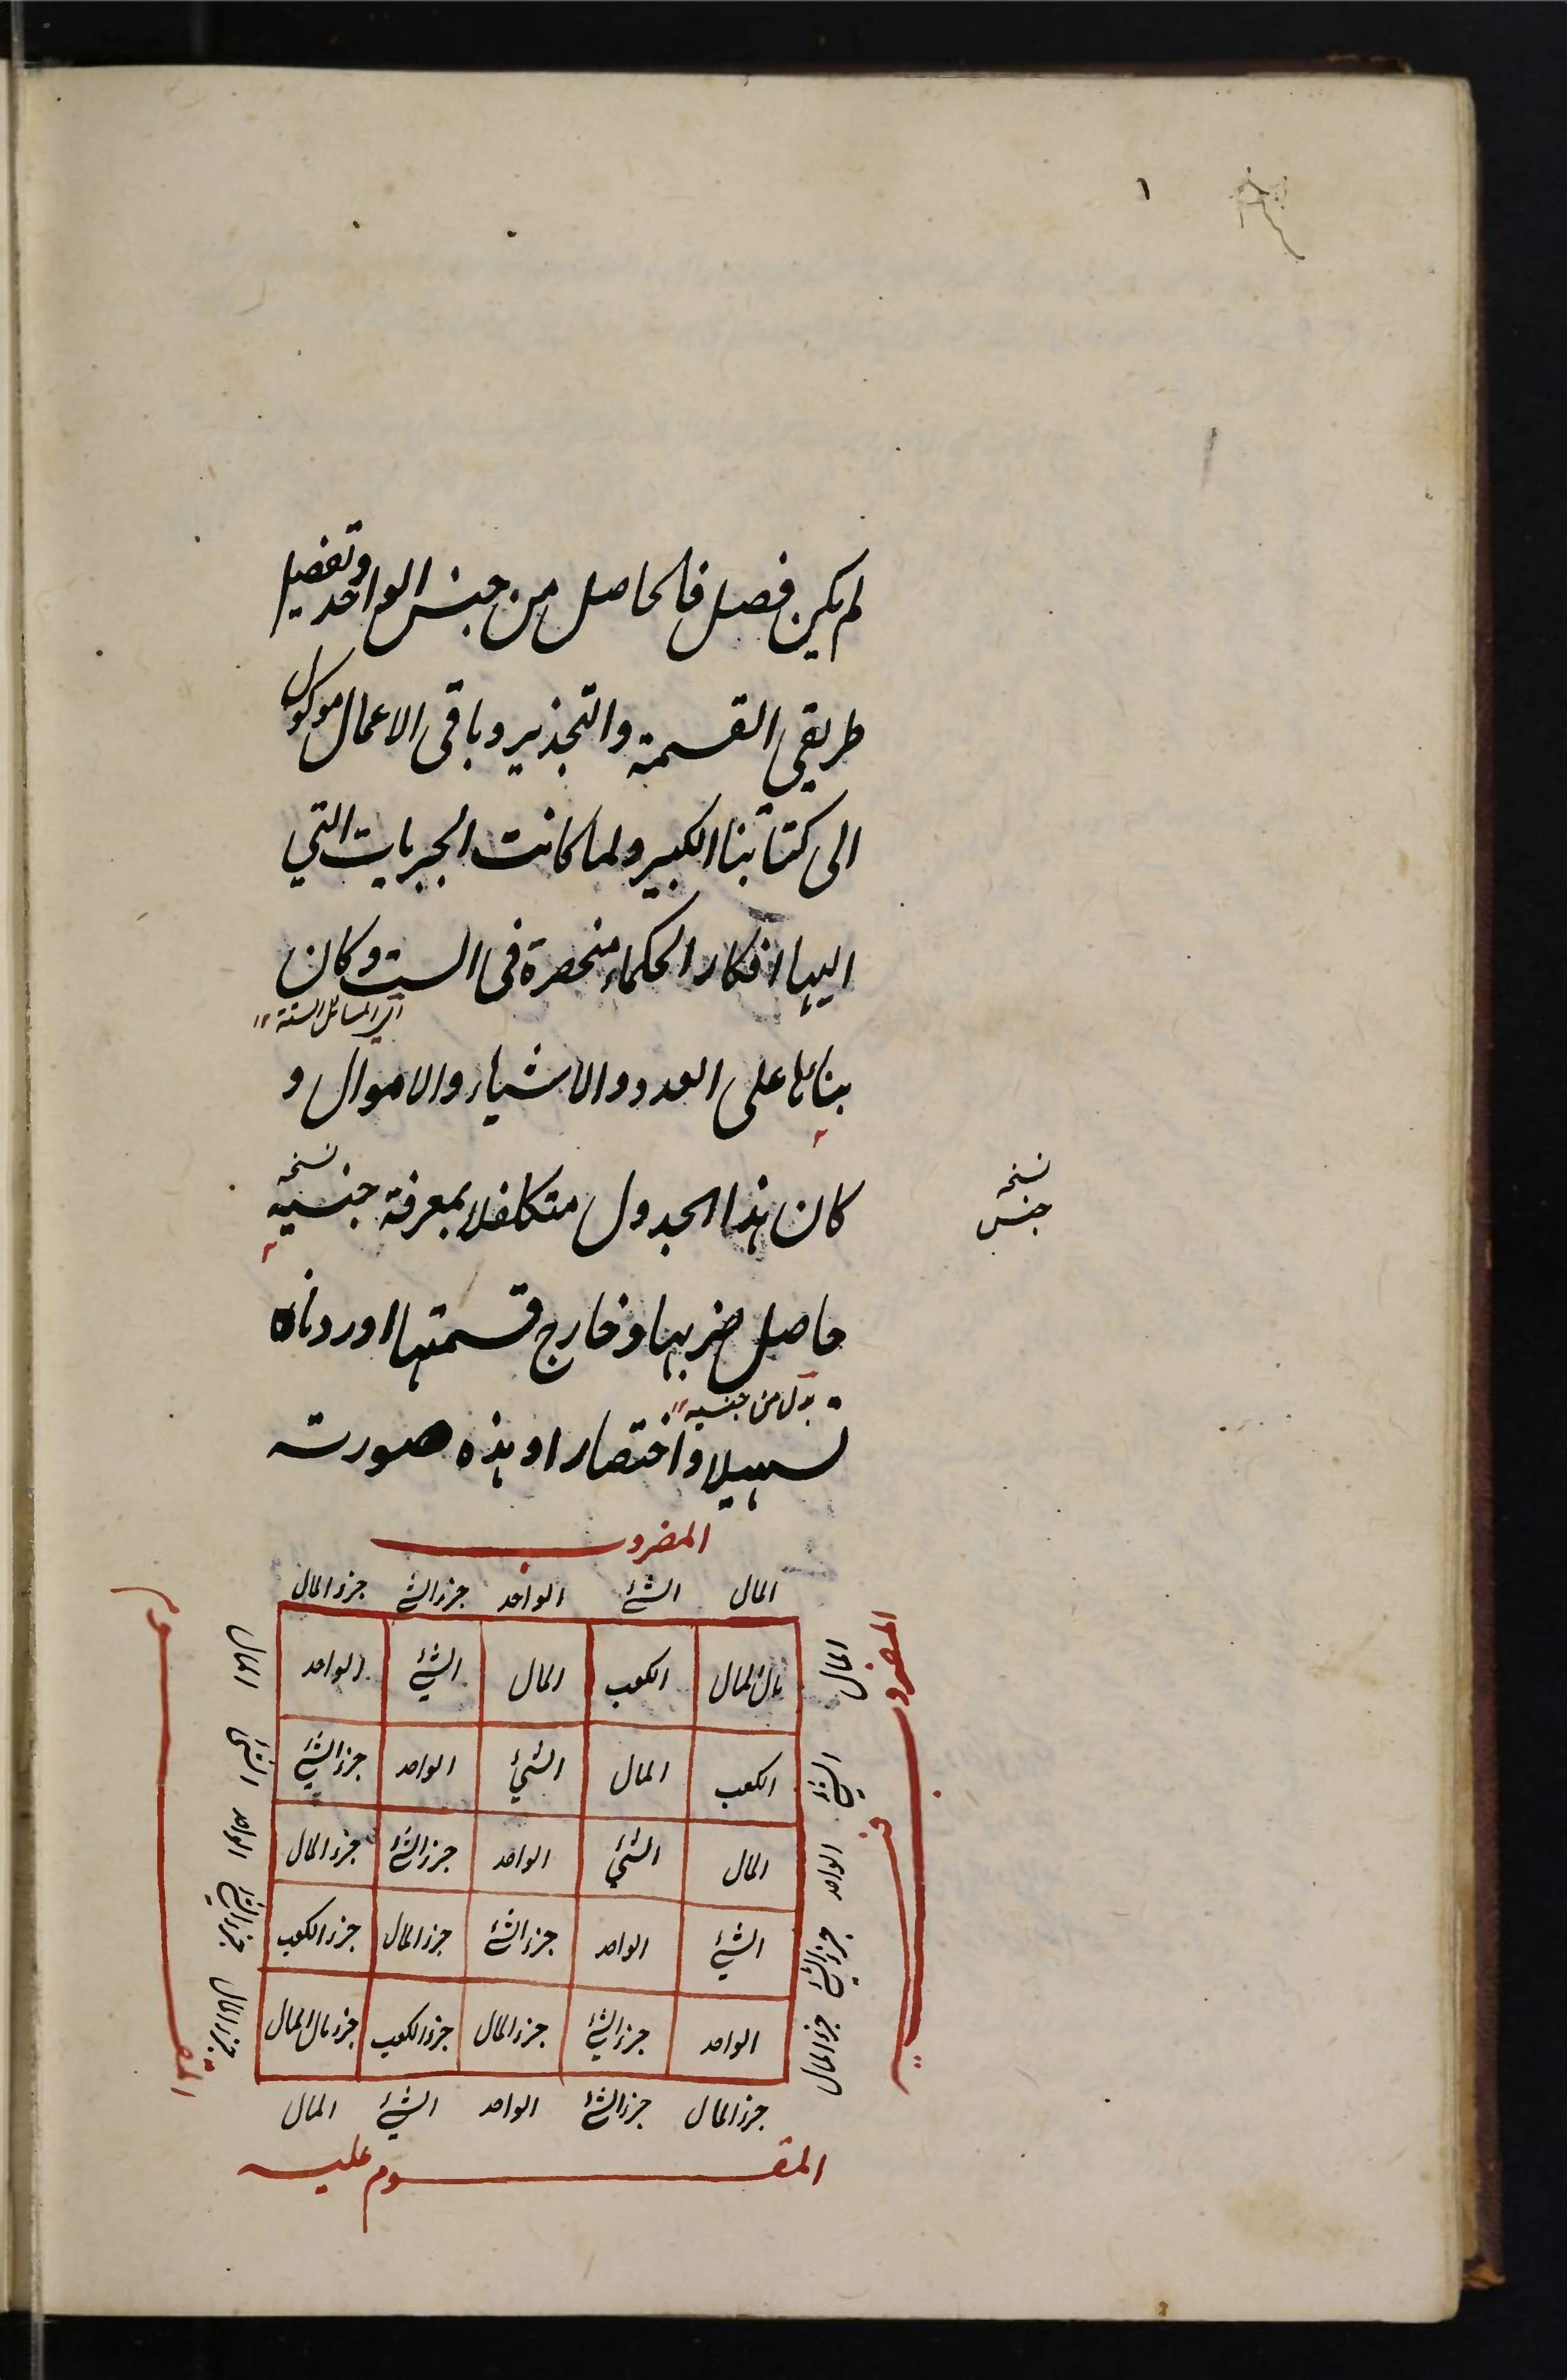 ١
لم يكن فصل فالحاصل من جنس الواحد وتفصيل
طريقي القسمة والتجذير وباقي الاعمال موكول
الى كتابنا الكبير ولما كانت الجبريات التي
اليها افكار الحكماء منحصرة في الست وكان
اي المسائل الستة
بنائها على العدد والاشياء والاموال و
كان هذا الجدول متكافلا بمعرفة جنسية
نسخه
نسخه
جنس
حاصل ضربها وخارج قسمتها اوردناه
بدل من جنسيه
تسهيلا واختصارا وهذه صورته
المضروب
المال الشئ الواحد جزء الشئ جزء المال
المال مال المال الكعب المال الشئ الواحد المال
الشئ الكعب المال الشئ الواحد جزء الشئ الشئ
الواحد المال الشئ الواحد جزء الشئ جزء المال الواحد
جزء الشئ الشئ الواحد جزء الشئ جزء المال جزء الكعب جزء الشئ
جزء المال الواحد جزء الشئ جزء المال جزء الكعب جزء مال المال جزء المال
جزء المال جزء الشئ الواحد الشئ المال
المقسوم عليه
المضروب فيه
المقسوم